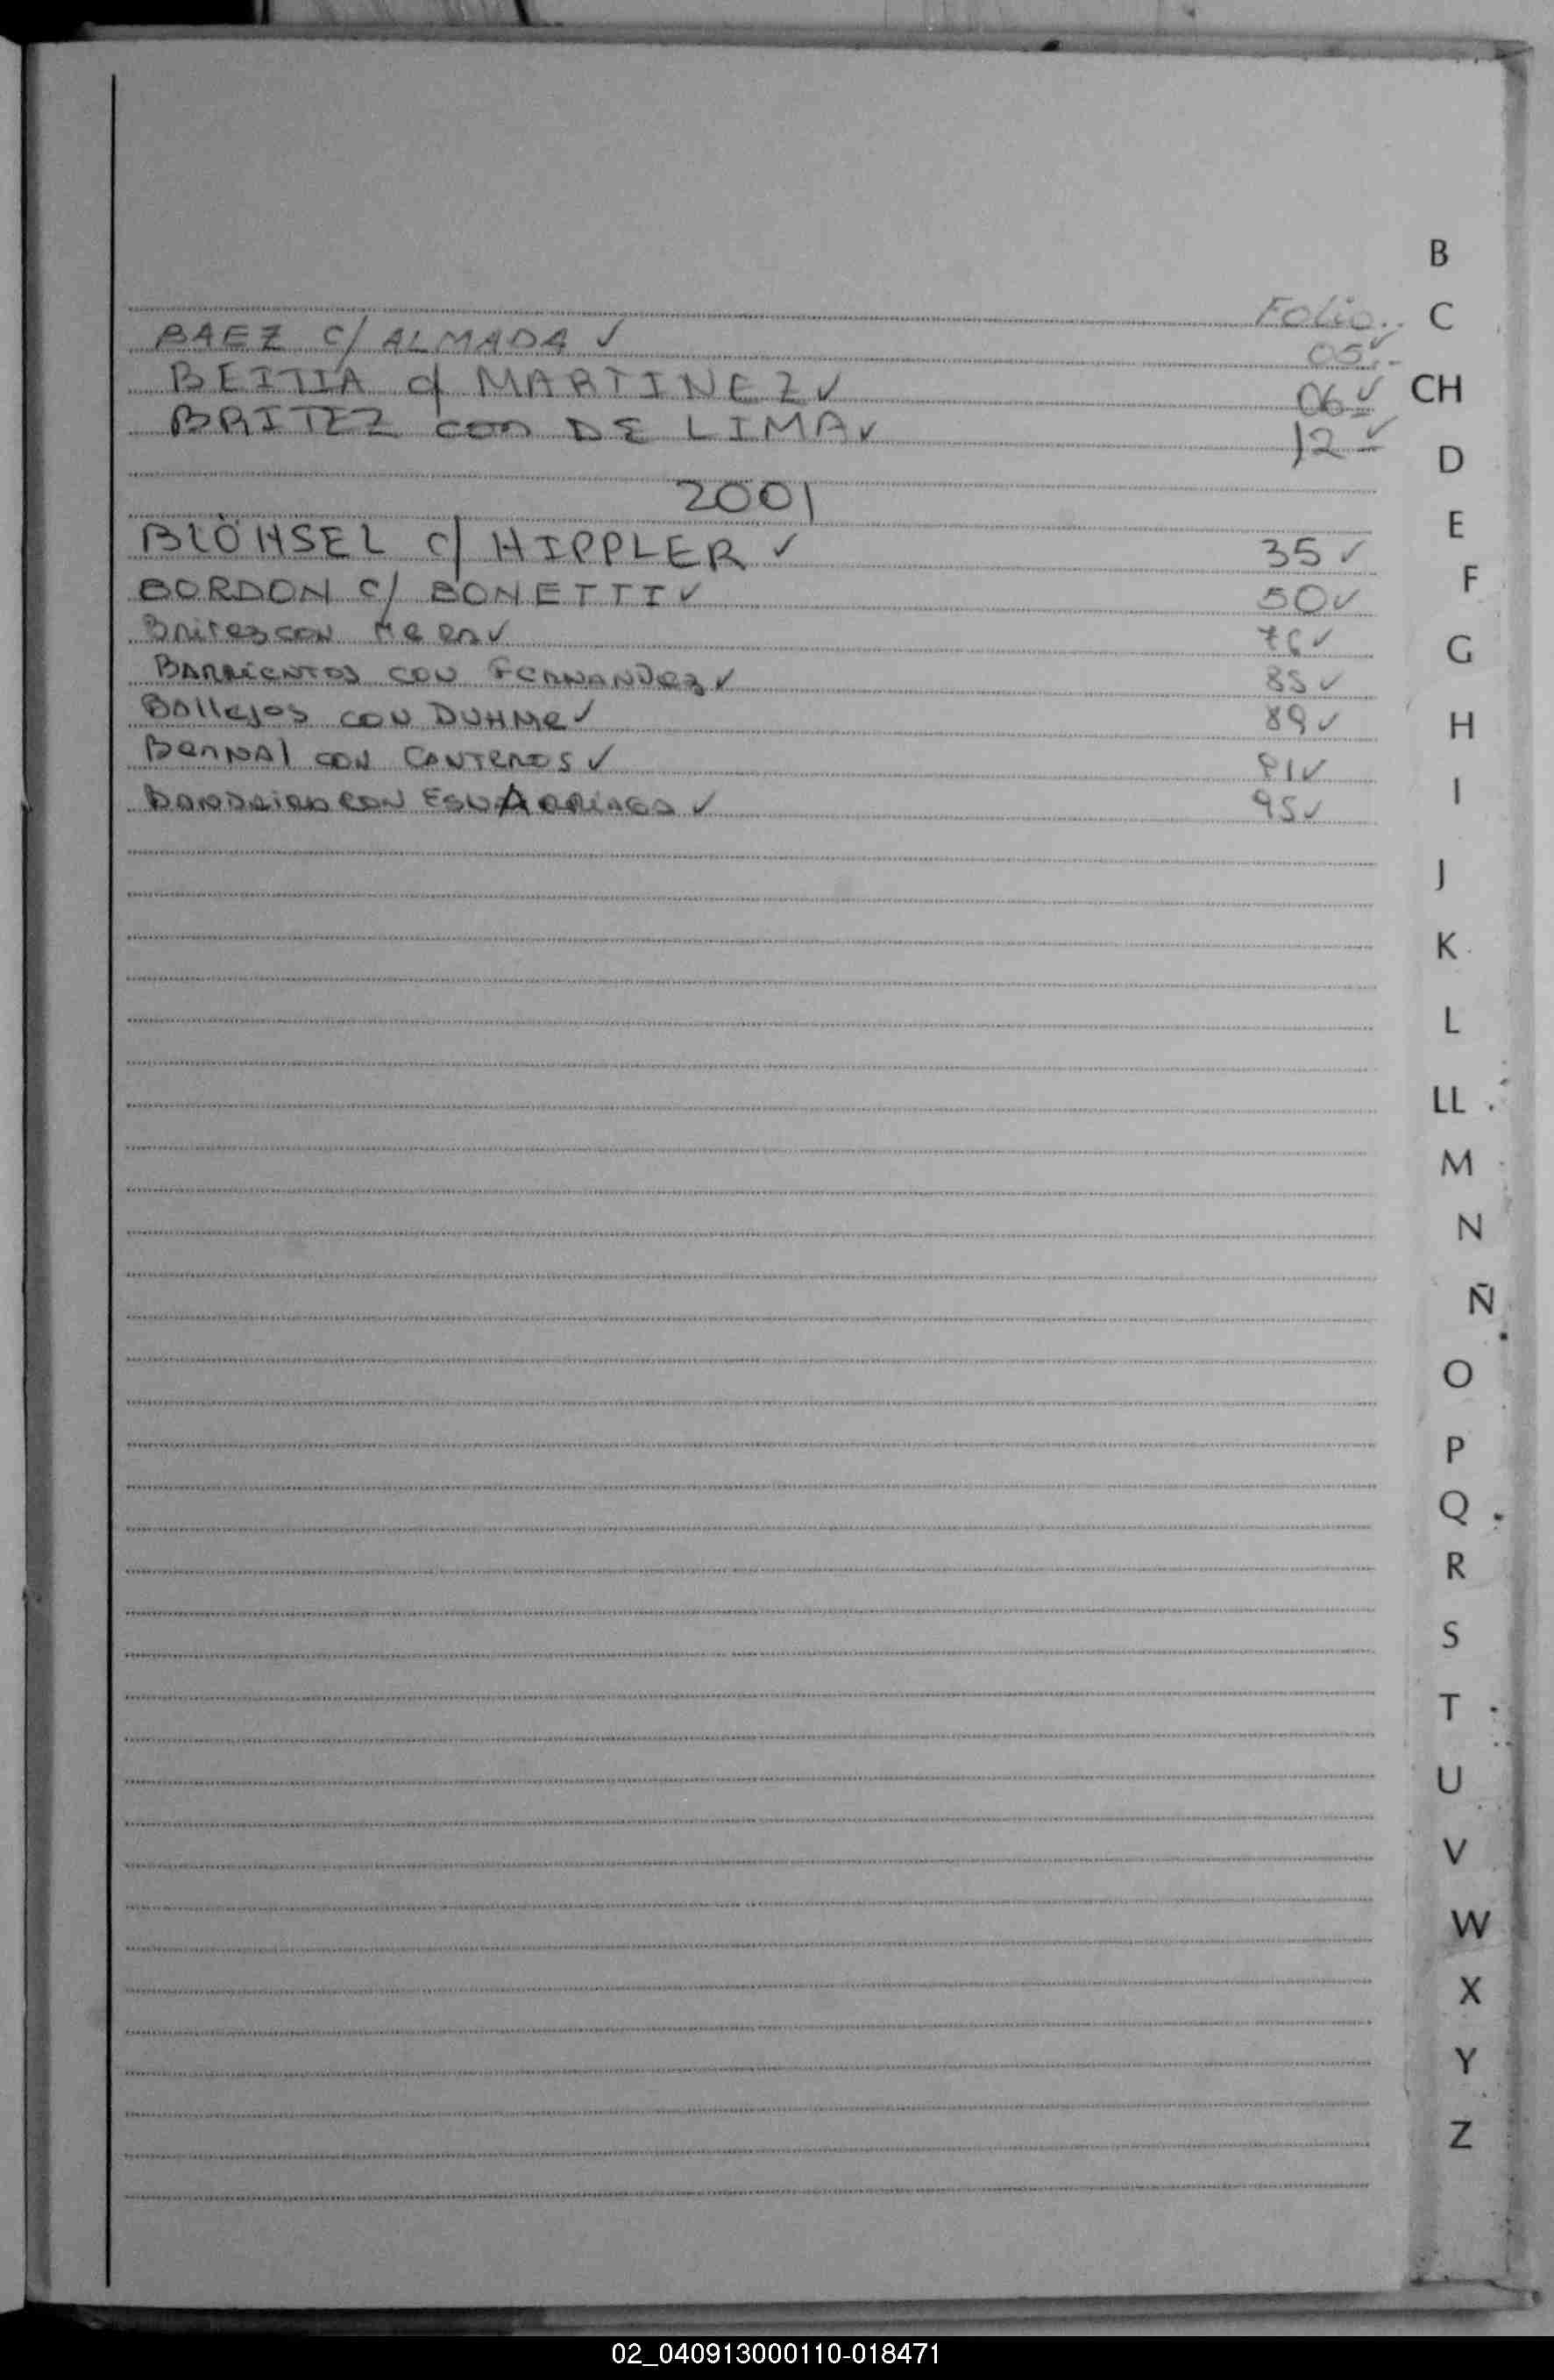 Folio
BAEZ c/ ALMADA ✓ 05 ✓
BEITIA c/ MARTINEZ ✓ 06 ✓
BRITEZ con DE LIMA ✓ 12 ✓
2001
BLÖHSEL c/ HIPPLER ✓ 35 ✓
BORDON c/ BONETTI ✓ 50 ✓
Britez con ✓ 76 ✓
BARRIENTOS CON FERNANDEZ ✓ 85 ✓
Ballejos CON DUHME ✓ 89 ✓
BERNAL CON CANTEROS ✓ 91 ✓
CON ✓ 95 ✓
B
C
CH
D
E
F
G
H
I
J
K
L
LL
M
N
Ñ
O
P
Q
R
S
T
U
V
W
X
Y
Z
02_040913000110-018471